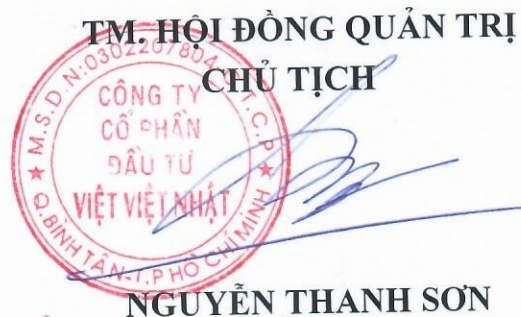 TM. HỘI ĐỒNG QUẢN TRỊ
CHỦ TỊCH
M.S.D.N:0302207804.C.T.C.P
CÔNG TY
CỔ PHẦN
ĐẦU TƯ
VIỆT VIỆT NHẬT
Q.BÌNH TÂN-T.P HỒ CHÍ MINH
NGUYỄN THANH SƠN